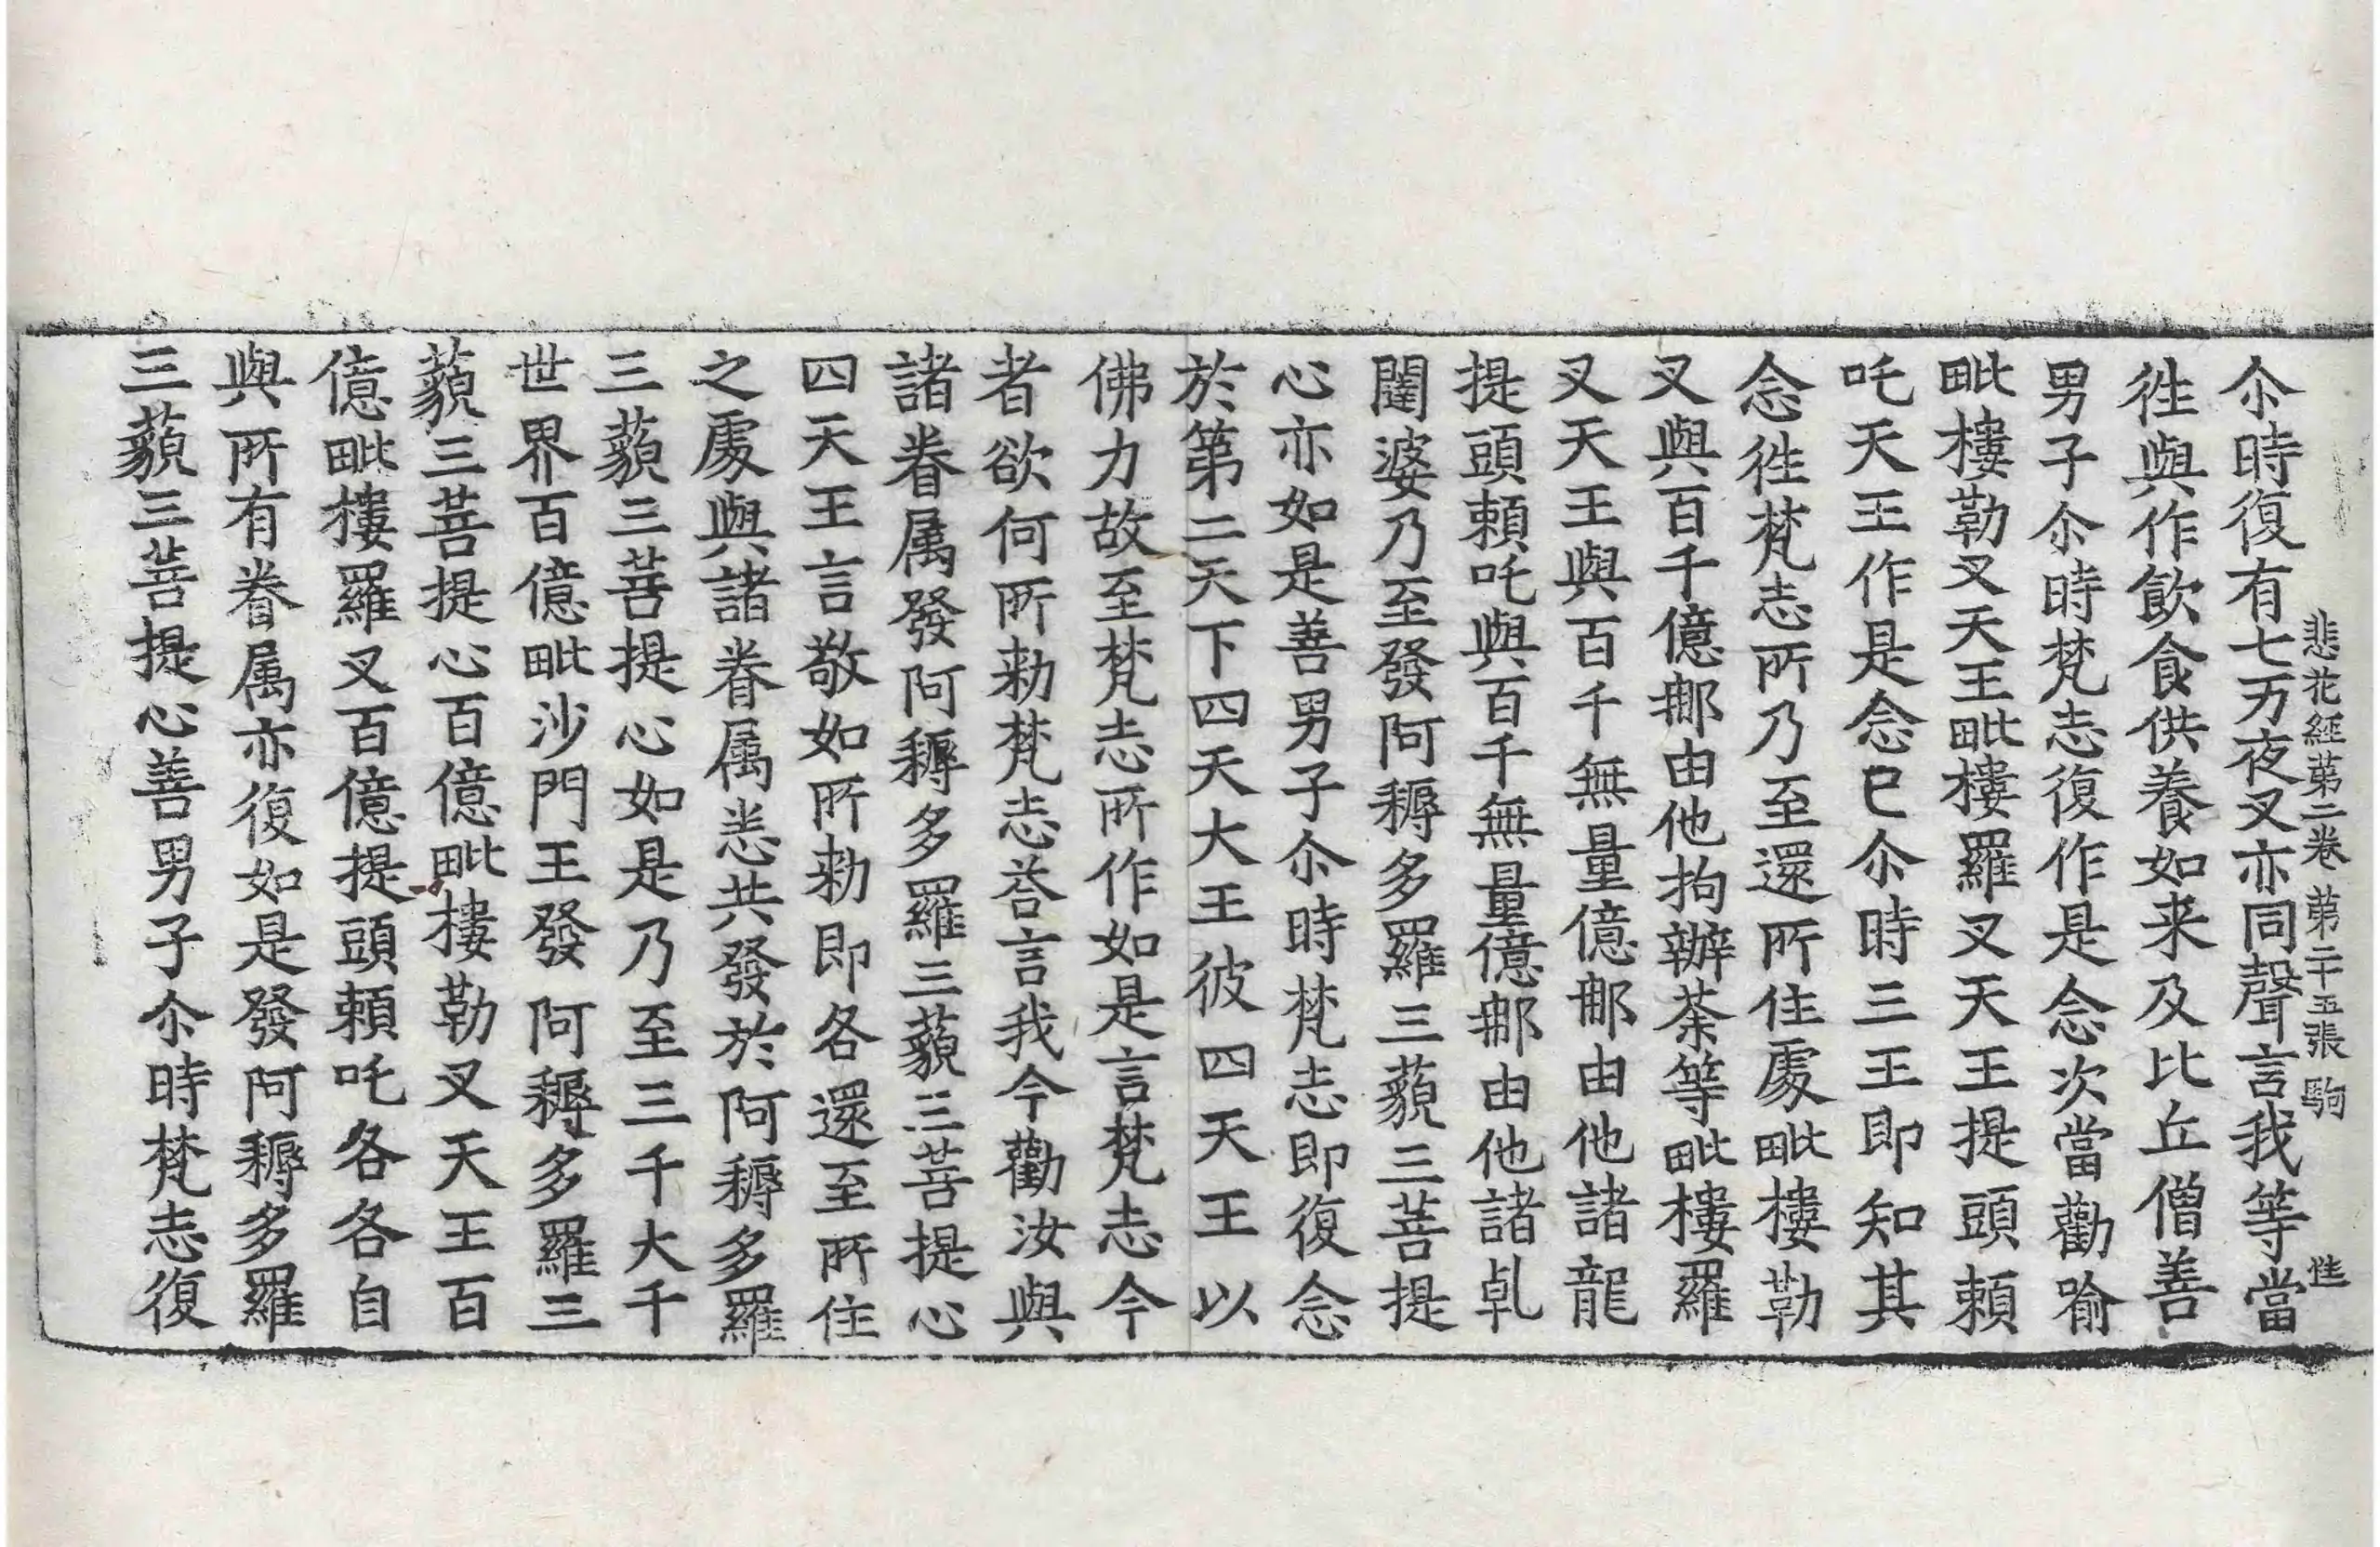 悲花經第二卷 第二十五張 駒 惟
尒時復有七万夜叉亦同聲言我等當
徃與作飲食供養如来及比丘僧善
男子尒時梵志復作是念次當勸喻
毗樓勒叉天王毗樓羅叉天王提頭頼
吒天王作是念已尒時三王即知其
念徃梵志所乃至還所住處毗樓勒
叉與百千億𨚗由他拘辦荼等毗樓羅
叉天王與百千無量億𨚗由他諸龍
提頭頼吒與百千無量億𨚗由他諸乹
闥婆乃至發阿耨多羅三藐三菩提
心亦如是善男子尒時梵志即復念
於第二天下四天大王彼四天王以
佛力故至梵志所作如是言梵志今
者欲何所勑梵志荅言我今勸汝與
諸眷属發阿耨多羅三藐三菩提心
四天王言敬如所勑即各還至所住
之處與諸眷属悉共發於阿耨多羅
三藐三菩提心如是乃至三千大千
世界百億毗沙門王發阿耨多羅三
藐三菩提心百億毗樓勒叉天王百
億毗樓羅叉百億提頭頼吒各各自
與所有眷属亦復如是發阿耨多羅
三藐三菩提心善男子尒時梵志復